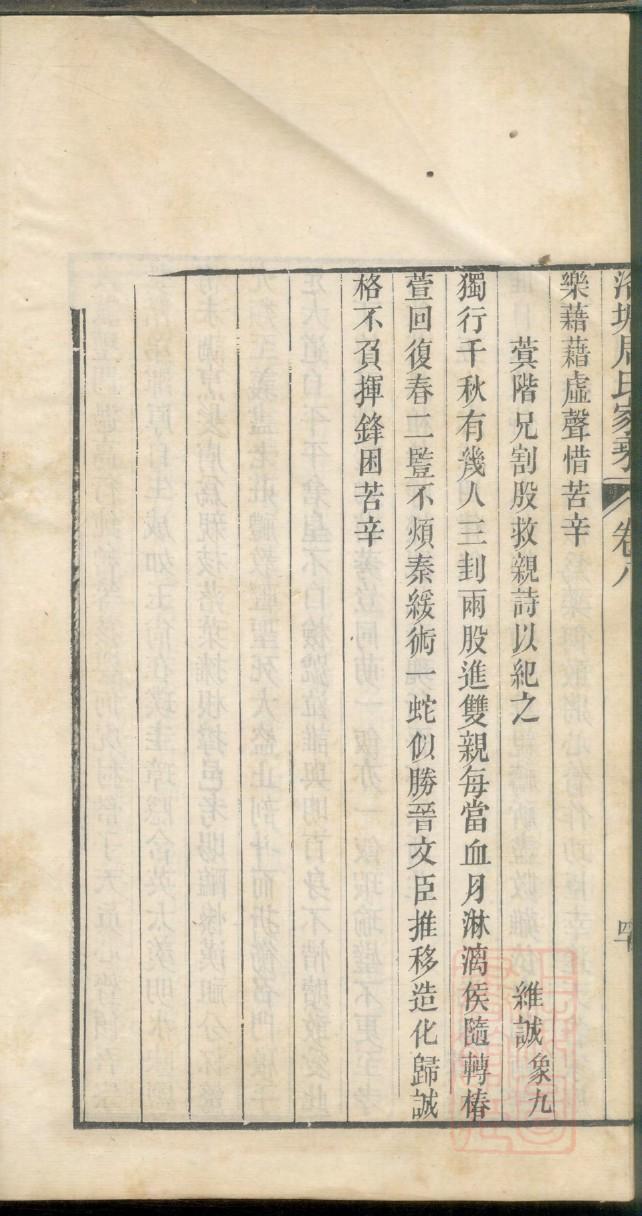 洛塘周氏家乘 卷八
樂藉藉虛聲惜苦辛
蓂階兄割股救親詩以紀之 維誠象九
獨行千秋有幾人三刲兩股進雙親每當血月淋漓侯隨轉椿
萱回復春二豎不煩秦緩術一蛇似勝晉文臣推移造化歸誠
格不負揮鋒困苦辛